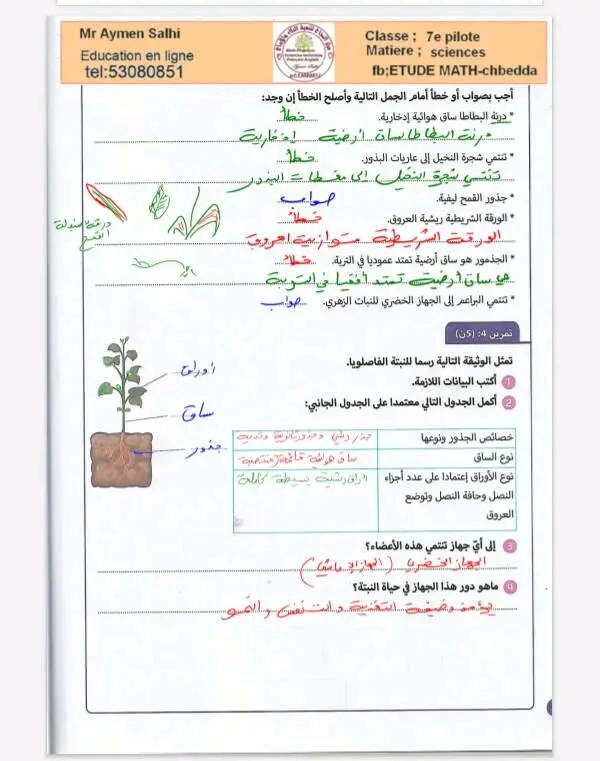 Mr Aymen Salhi
Education en ligne
tel:53080851
Classe ; 7e pilote
Matiere ; sciences
fb;ETUDE MATH-chbedda
أجب بصواب أو خطأ أمام الجمل التالية وأصلح الخطأ إن وجد:
* درنة البطاطا ساق هوائية إدخارية. خطأ
درنة البطاطا ساق أرضية إدخارية
* تنتمي شجرة النخيل إلى عاريات البذور. خطأ
تنتمي شجرة النخيل إلى مغطات البذور
* جذور القمح ليفية. صواب
* الورقة الشريطية ريشية العروق. خطأ
الورقة الشريطية متوازية العروق
* الجذمور هو ساق أرضية تمتد عموديا في التربة. خطأ
هي ساق أرضية تمتد أفقيا في التربة
* تنتمي البراعم إلى الجهاز الخضري للنبات الزهري. صواب
القمح
تمرين 4: (5ن)
تمثل الوثيقة التالية رسما للنبتة الفاصلويا.
1 أكتب البيانات اللازمة.
2 أكمل الجدول التالي معتمدا على الجدول الجانبي:
أوراق
ساق
جذور
خصائص الجذور ونوعها
نوع الساق ساق هوائية قائمة
نوع الأوراق إعتمادا على عدد أجزاء
النصل وحافة النصل وتوضع
العروق
بسيطة كاملة
3 إلى أيّ جهاز تنتمي هذه الأعضاء؟
الجهاز الخضري
4 ماهو دور هذا الجهاز في حياة النبتة؟
يؤمن وظيفة التغذية والتنفس والنمو